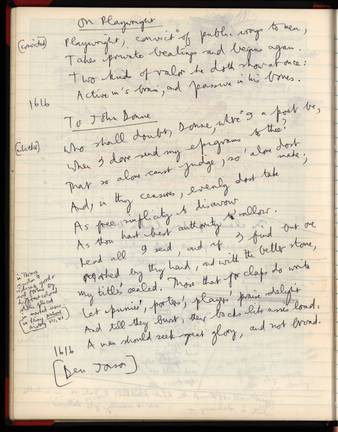 On Playwright
(convicted)
Playwright, convict of public wrongs to men,
Takes private beatings and begins again.
Two kinds of valor he doth show at once:
Active in's brain, and passive in his bones.
1616
To John Donne
Who shall doubt, Donne, whe'r I a poet be,
When I dare send my epigrams to thee?
That so alone canst judge, so alone dost make;
And, in thy censures, evenly dost take
As free simplicity to disavow
As thou hast best authority to allow.
Read all I send, and if I find but one
marked by thy hand, and with the better stone,
my title's sealed. Those that for claps do write
Let punies', porters', players' praise delight
And till they burst, their backs like asses load:
A man should seek great glory, and not broad.
1616
[Ben Jonson]